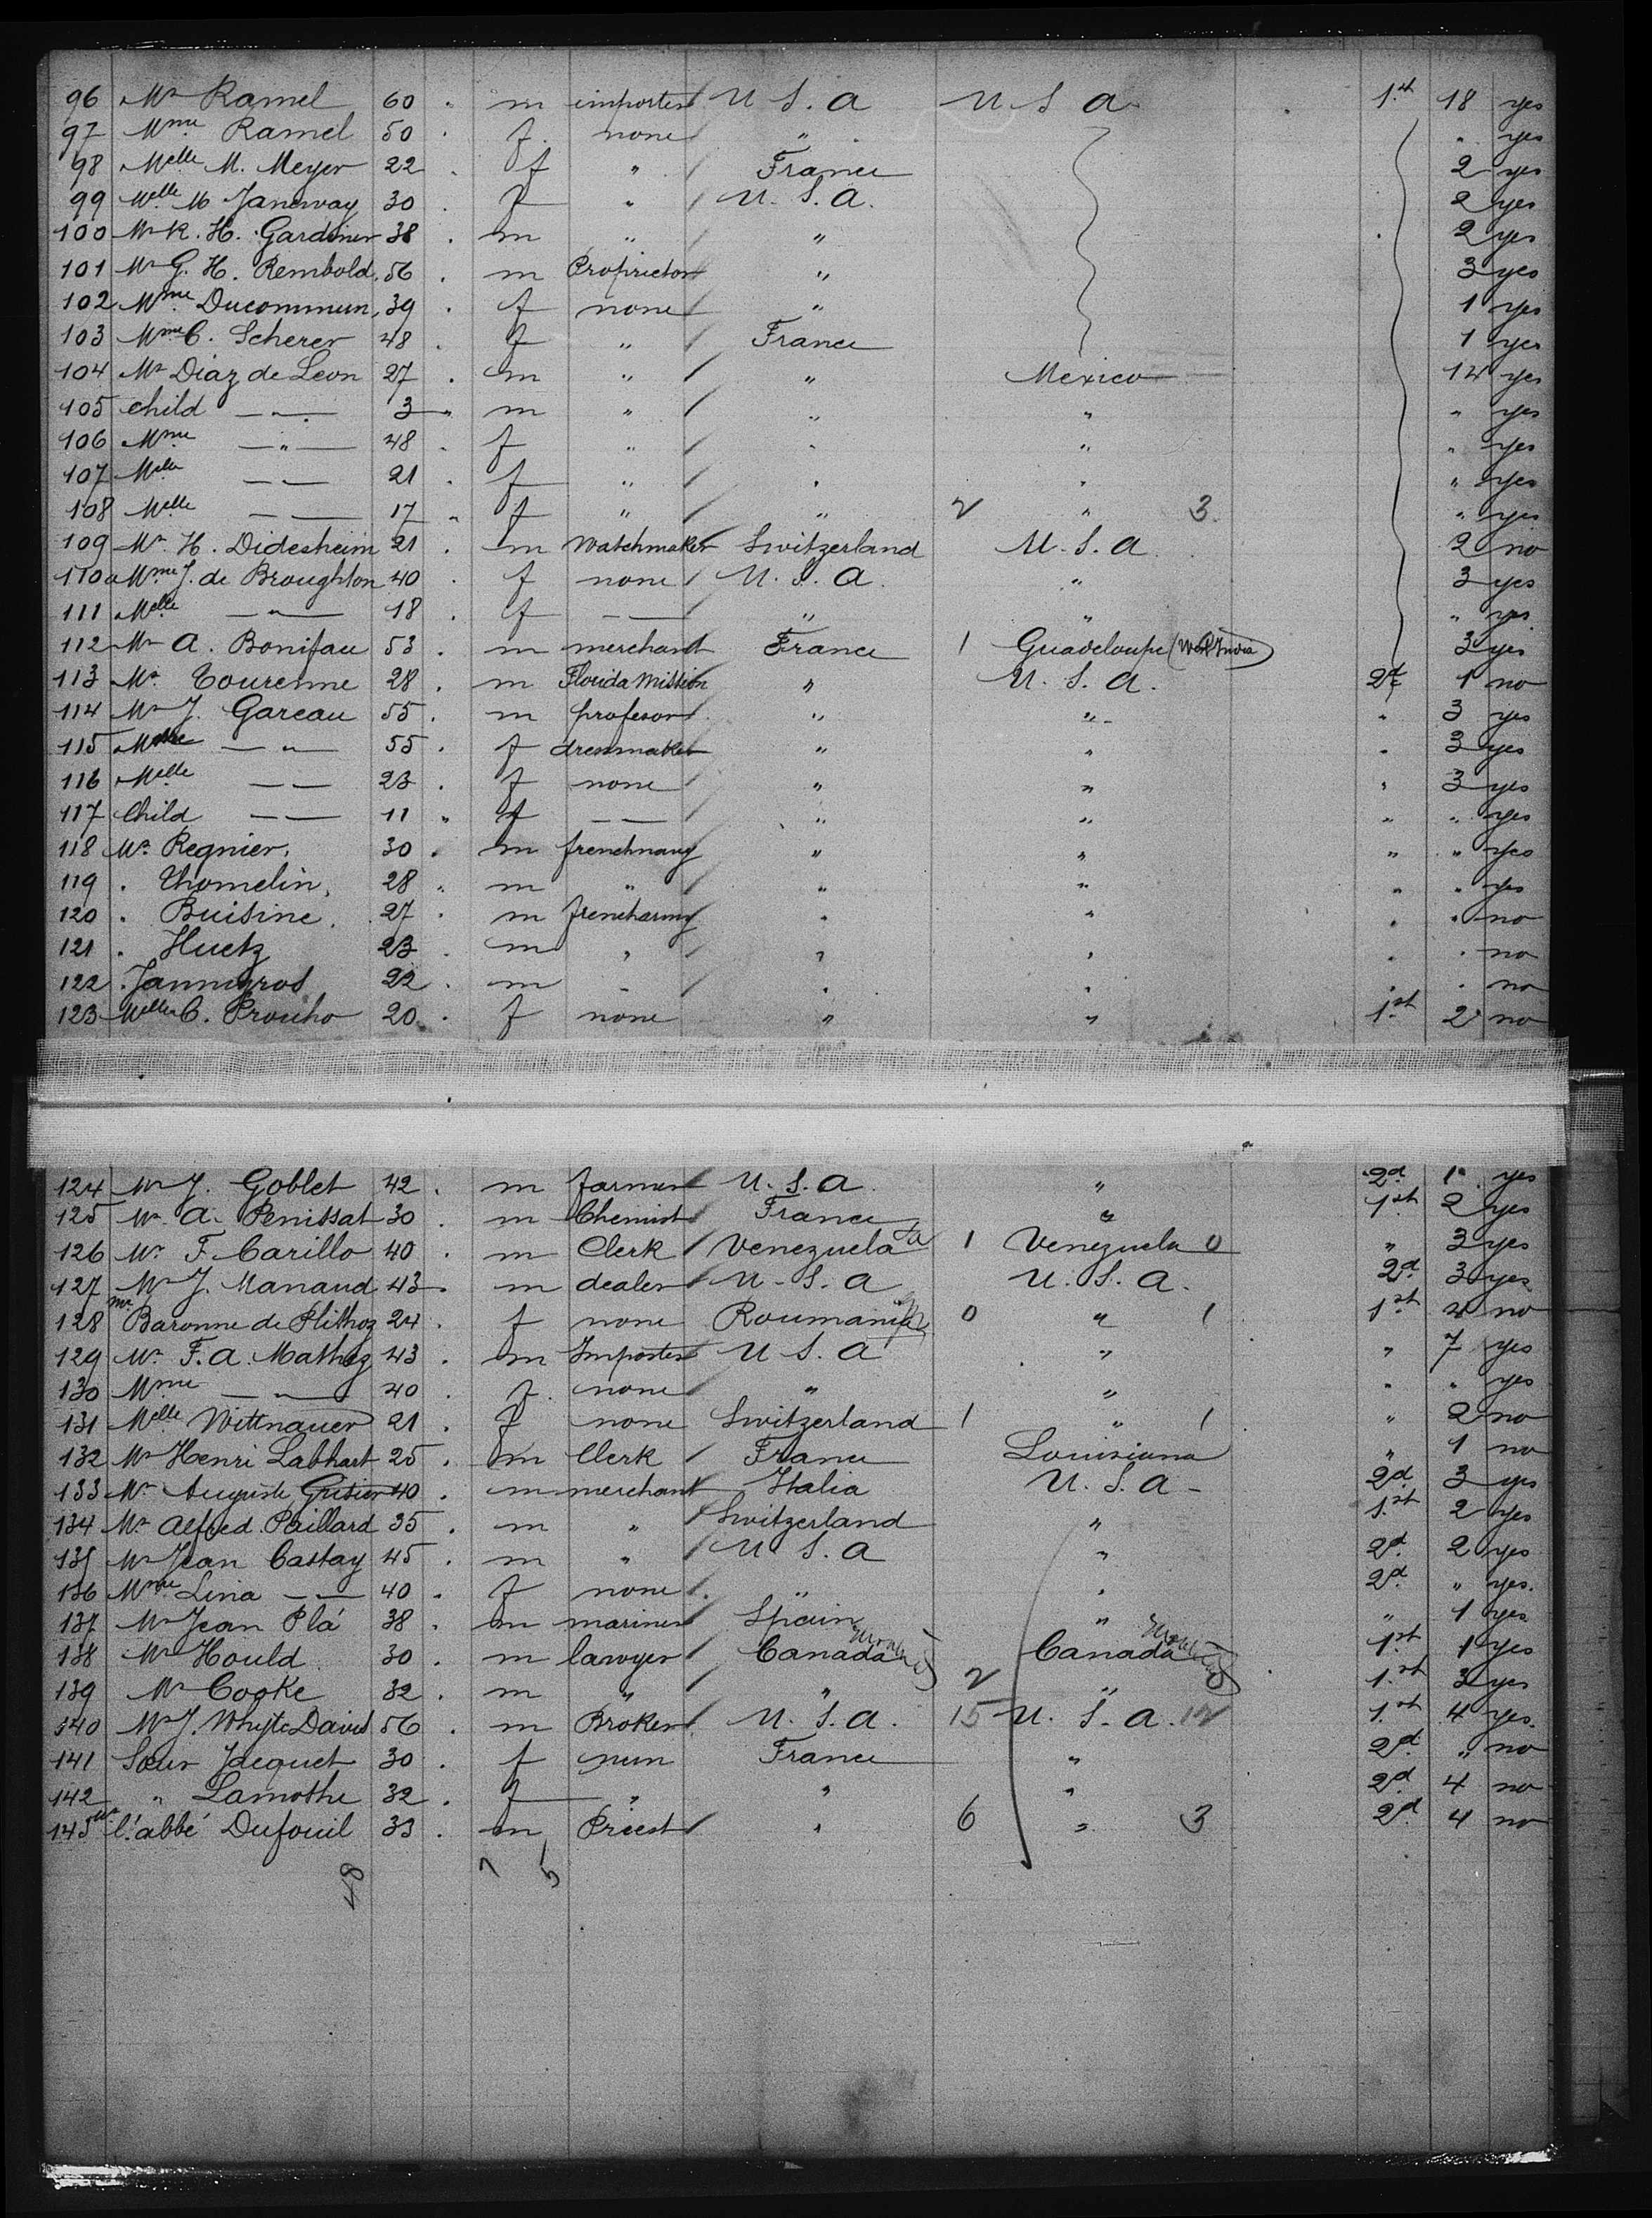 96 Mr Ramel 60 . m importer U S. a U S a 1.st 18 yes
97 Mme Ramel 50 . f. none " " yes
98 Melle M. Meyer 22 . f " France 2 yes
99 Melle M Janeway 30 . f " U. S. a. 2 yes
100 Mr R. H. Gardiner 38 . m " " 2 yes
101 Mr G. H. Rembold 56 . m Proprietor " 3 yes
102 Mme Ducommun, 39 . f none " 1 yes
103 Mme C. Scherer 48 . f " France 1 yes
104 Mr Diaz de Leon 27 . m " " Mexico 14 yes
105 child — " — 3 " m " " " " yes
106 Mme — " — 48 . f " " " " yes
107 Melle — — 21 . f " " " " yes
108 Melle — — 17 " f " " 2 " 3 " yes
109 Mr H. Didesheim 21 . m Watchmaker Switzerland U. S. a 2 no
110 Mme J. de Broughton 40 . f none U. S. a. " 3 yes
111 Melle — " — 18 . f — — " " " yes
112 Mr A. Bonifau 53 . m merchant France 1 Guadeloupe (West India) 3 yes
113 Mr. Tourenne 28 . m Florida Mission " U. S. a. 2d 1 no
114 Mr J. Gareau 55 . m profesor " " " 3 yes
115 — " — 55 . f dressmaker " " " 3 yes
116 Melle — — 23 . f none " " " 3 yes
117 Child — — 11 " f — — " " " " yes
118 Mr. Regnier. 30 . m frenchnavy " " " " yes
119 . Thomelin, 28 " m " " " " " yes
120 . Buisine . 27 . m frencharmy " " " " no
121 . Huetz 23 . m " " " . . no
122 . Jannigros 22 . m " " " . . no
123 Melle C. Proucho 20 . f none " " 1.st 2 no
124 Mr J. Goblet 42 . m farmer U. S. a " 2d. 1 yes
125 Mr. A. Penissat 30 . m Chemist France " 1.st 2 yes
126 Mr. F. Carillo 40 . m Clerk Venezuela 1 Venezuela 0 " 3 yes
127 Mr J. Manaud 43 . m dealer U. S. a U. S. a. 2d. 3 yes
128 Baronne de Plithoz 24 . f none Roumania 0 " 1 1.st 4 no
129 Mr. F. A. Mathez 43 . m Importer U S. a " " 7 yes
130 Mme — " — 40 . f. none " " " " yes
131 Melle Wittnauer 21 . f none Switzerland 1 " 1 " 2 no
132 Mr Henri Labhart 25 . m Clerk France Louisiana " 1 no
133 Mr. Auguste Grisier 40 . m merchant Italia U. S. a - 2d. 3 yes
134 Mr Alfred Paillard 35 . m " Switzerland " 1.st 2 yes
135 Mr Jean Castay 45 . m " U S. a " 2d. 2 yes
136 Mme Lina — — 40 . f none " " 2d. " yes.
137 Mr Jean Plá 38 . m mariner Spain " " 1 yes
138 Mr Hould 30 . m lawyer Canada Canada 1.st 1 yes
139 Mr Cooke 32 . m " " 2 " 1.st 3 yes
140 Mr J. Whyte David 56 . m Broker U. S. a. 15 U. S. a. 12 1.st 4 yes.
141 Sœur Jacquet 30 . f nun France " 2d. " no
142 " Lamothe 32 . f " " " 2d. 4 no
143 Mr l'abbé Dufouil 33 . m Priest " 6 " 3 2d. 4 no
48 7 5